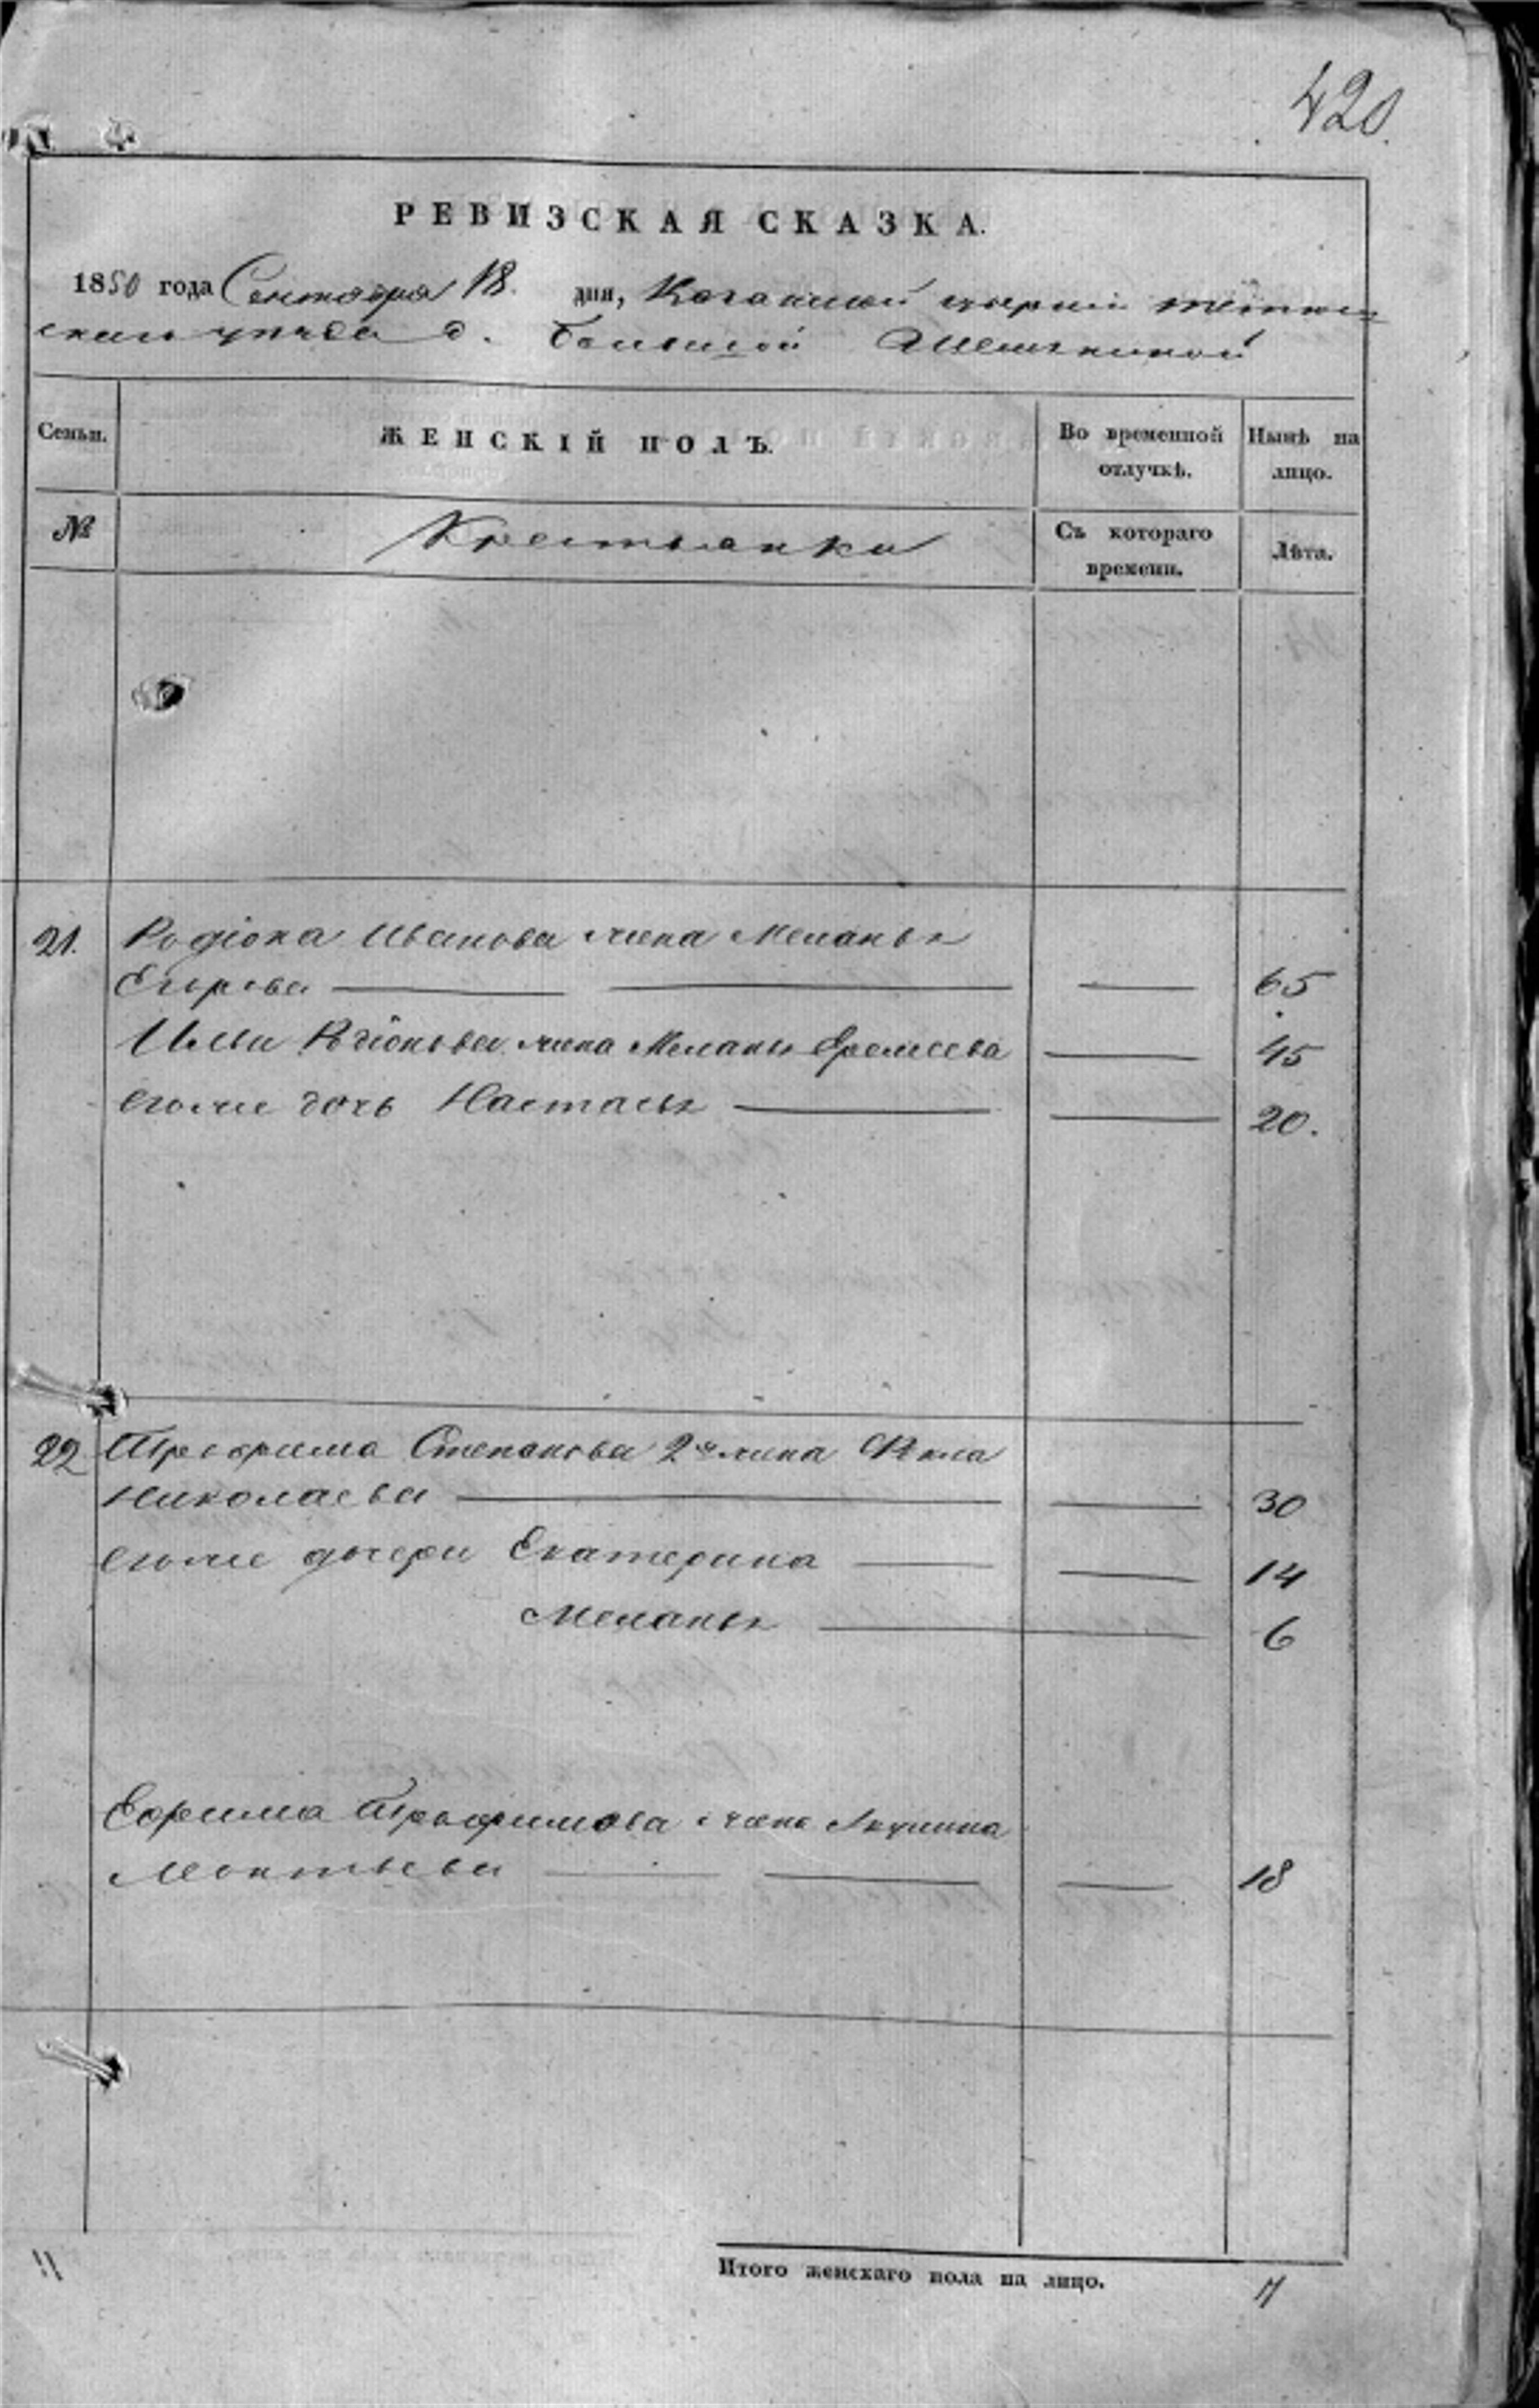 420.
РЕВИЗСКАЯ СКАЗКА.
1850 года Сентября 18. дня, Казанской губерніи тетюш-
скаго уезда д. Большой
Семьи. ЖЕНСКІЙ ПОЛЪ. Во временной отлучкѣ. Нынѣ на лицо.
№ Крестьянки Съ котораго времени. Лѣта.
21. Родіона Иванова жена Меланья
Егорова — — — 65
Ильи Родіонова жена Меланья Еремеева — 45
егоже дочь Настасья — — 20.
22 Трофима Степанова 2я жена Фекла
Николаева — — 30
егоже дочери Екатерина — — 14
Меланья — 6
Ефрема Трофимова жена Акулина
— — — 18
Итого женскаго пола на лицо.